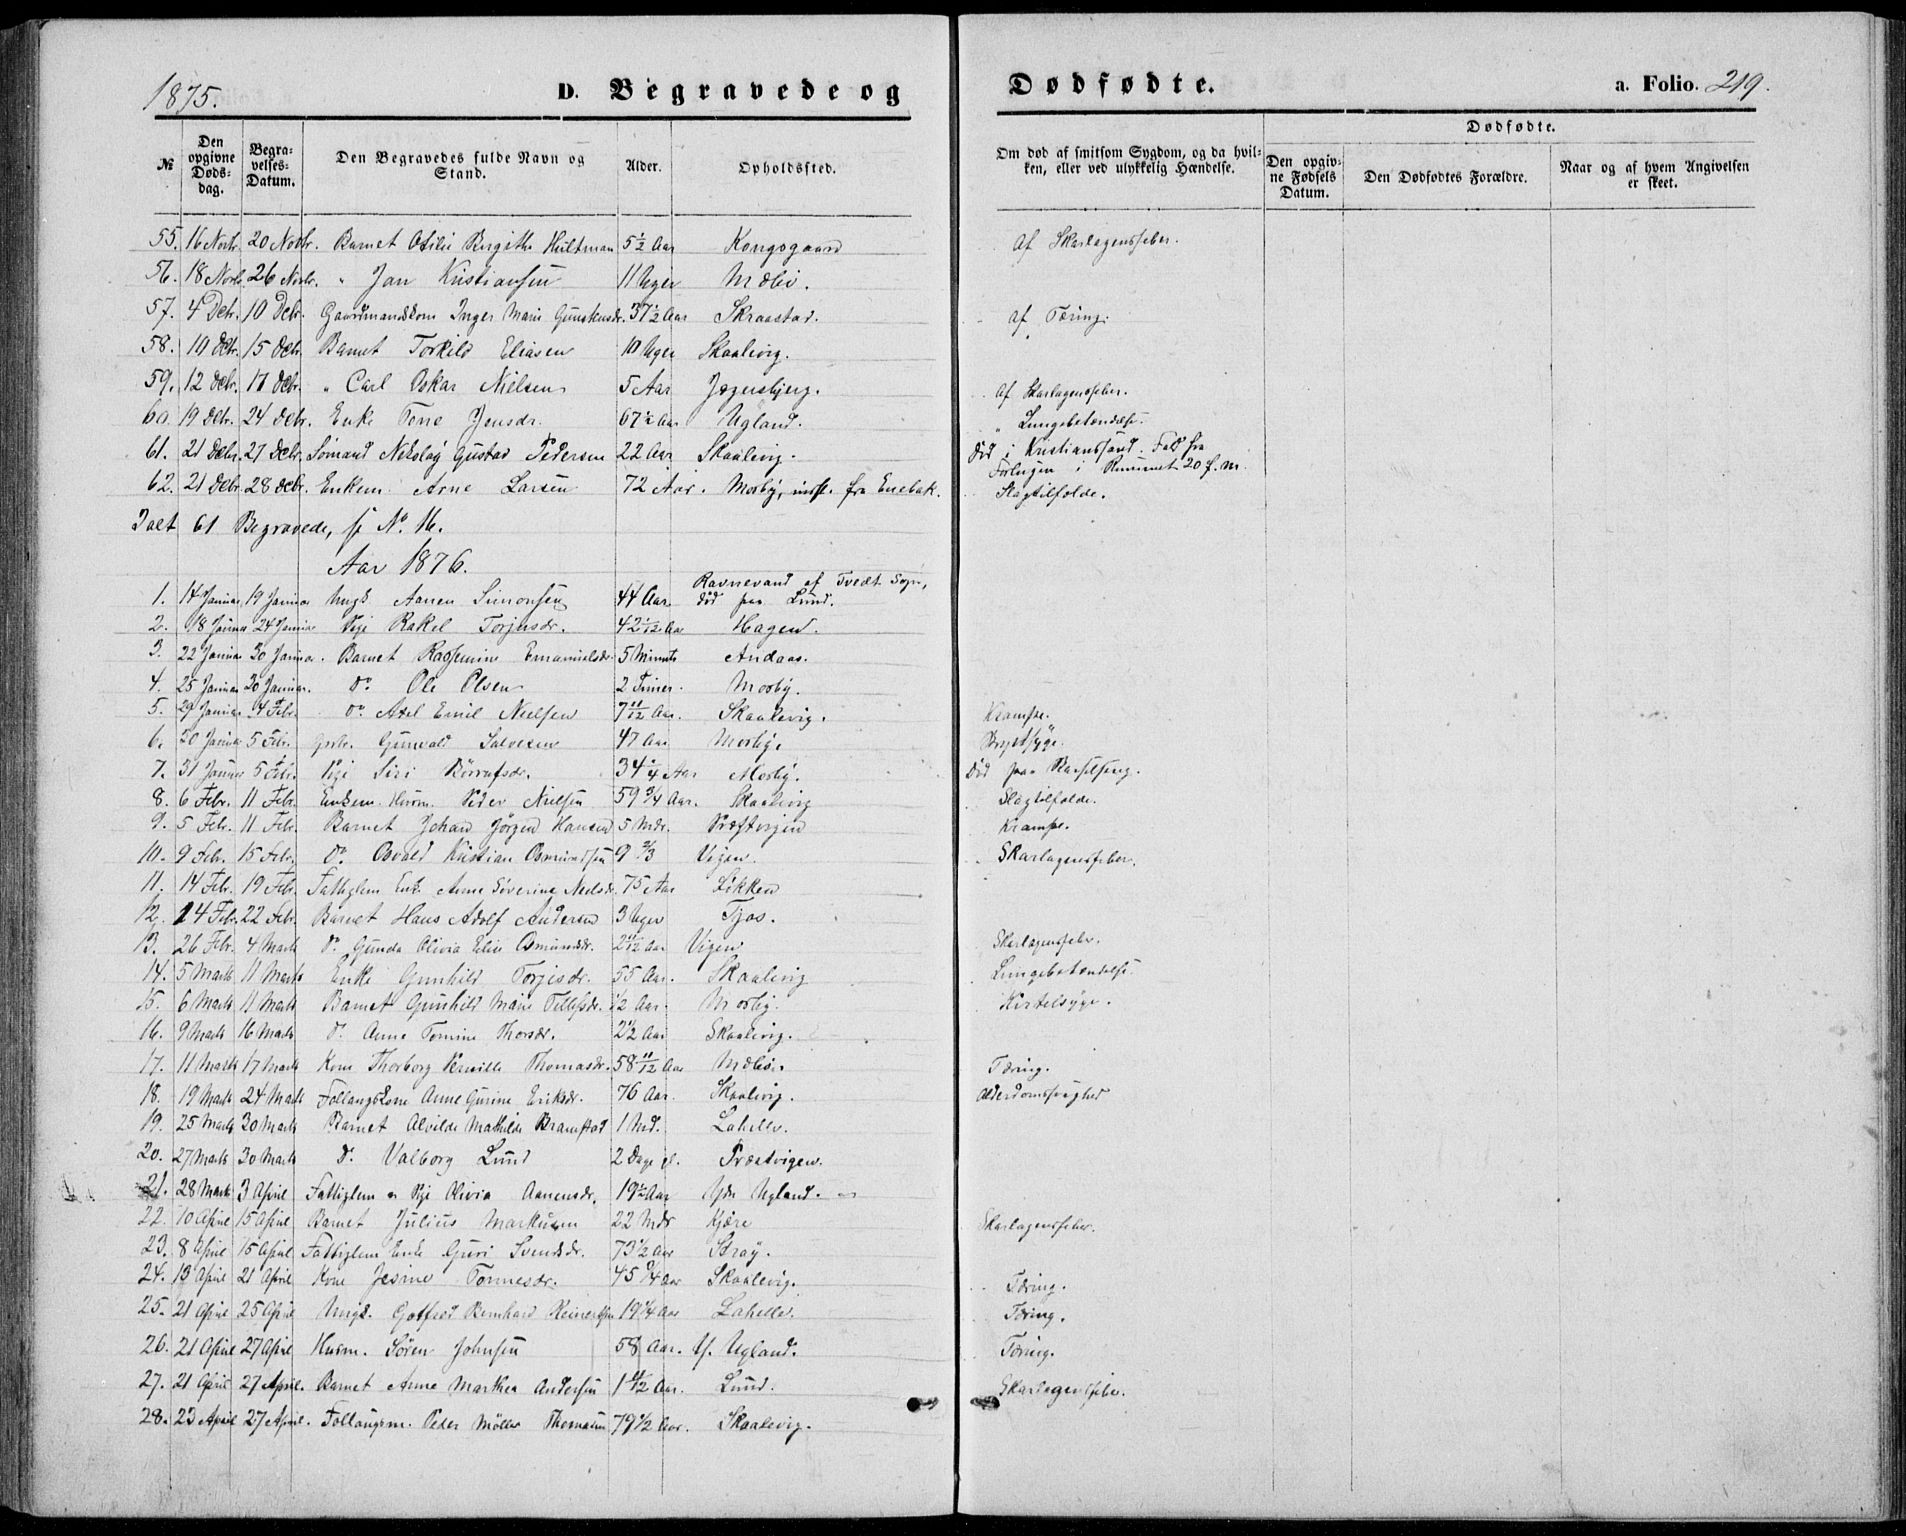 1875.
D. Begravede og Dødfødte.
a. Folio. 219.
№
Den opgivne Døds-dag.
Begra-velses-Datum.
Den Begravedes fulde Navn og Stand.
Alder.
Opholdssted.
Om død af smitsom Sygdom, og da hvil-ken, eller ved ulykkelig Hændelse.
Dødfødte.
Den opgiv-ne Fødsels Datum.
Den Dødfødtes Forældre.
Naar og af hvem Angivelsen er skeet.
55. 16 Novbr. 20 Novbr. Barnet Otilie Birgitte Hultman 5½ Aar Kongsgaard af Skarlagensfeber.
56. 18 Novbr. 26 Novbr. " Jan Kristiansen 11 Uger Mæbø.
57. 4 Debr. 10 Debr. Gaardmandskone Inger Marie Gunstensdr. 37½ Aar Skraastad. af Tæring.
58. 10 Debr. 15 Debr. Barnet Torkild Eliasen 10 Uger Skaalevig.
59. 12 Debr. 17 Debr. " Carl Oskar Nielsen 5 Aar Jegersbjerg. af Skarlagensfeber.
60. 19 Debr. 24 Debr. Enke Tone Jensdr. 67½ Aar Ugland. " Lungebetændelse.
61. 21 Debr. 27 Debr. Sømand Nikolay Gustav Pedersen 22 Aar Skaalevig. Død i Kristianssand. Fald fra
Forlugen i Rummet 20 f. m.
62. 21 Debr. 28 Debr. Enkem. Arne Larsen 72 Aar. Mosby, fra Enebak. Slagtilfælde.
Ialt 61 Begravede, se No. 16.
Aar 1876.
1. 14 Januar 19 Januar Ungk. Aanen Simonsen 44 Aar Ravnevand af Tvedt Sogn,
død paa Lund.
2. 18 Januar 24 Januar Pige Rakel Torjusdr. 42 1/12 Aar Hagen.
3. 22 Januar 30 Januar. Barnet Rasmine Emanuelsdr. 5 Minuts Andaas.
4. 25 Januar 30 Januar. Do. Ole Olsen 2 Timer. Mosby.
5. 29 Januar 4 Febr. Do. Axel Emil Nielsen 7 11/12 Aar. Skaalevig. Krampe.
6. 30 Januar 5 Febr. Gunvald Salvesen 47 Aar Mosby. Brystsyge.
7. 31 Januar 5 Febr. Pige Siri 34 ¼ Aar Mosby. Død paa Barselseng.
8. 6 Febr. 11 Febr. Enkem. Husm. Peder Nielsen 59 ¾ Aar. Skaalevig Slagtilfælde.
9. 5 Febr. 11 Febr. Barnet Johan Jörgen Hansen 5 Mdr. Krampe.
10. 9 Febr. 15 Febr. Do. Osvald Kristian Osmundsen 9 ⅔ Vigen. Skarlagensfeber.
11. 14 Febr. 19 Febr. Fattiglem Enk. Anne Severine Nielsdr. 75 Aar Løkken
12. 14 Febr. 22 Febr. Barnet Hans Adolf Andersen 3 Uger Tjos.
13. 26 Febr. 4 Marts Do. Gunda Olivia Eline Osmundsdr. 2 11/12 Aar Vigen Skarlagensfeber.
14. 5 Marts 11 Marts Enke Gunhild Torjisdr. 55 Aar. Skaalevig Lungebetændelse.
15. 6 Marts 11 Marts Barnet Gunhild Marie Tellefsdr. ½ Aar. Mosby. Kirtelsyge.
16. 9 Marts 16 Marts Do. Anne Tomine Thorsdr. 2½ Aar Skaalevig.
17. 11 Marts 17 Marts Kone Thorborg Pernille Thomasdr. 58 11/12 Aar Mæbø. Tæring.
18. 19 Marts 24 Marts Føllaugskone Anne Gurine Eriksdr. 76 Aar. Skaalevig. Alderdomssvaghed
19. 25 Marts 30 Marts Barnet Alvilde Mathilde Bramstad 1 Md. Lahelle.
20. 27 Marts 30 Marts Do. Valborg Lund 2 Dage gl. Præstvigen.
21. 28 Marts 3 April Fattiglem Pige Olivia Aanensdr. 19½ Aar Ydr Ugland.
22. 10 April 15 April Barnet Julius Markusen 22 Mdr Kjære Skarlagensfeber.
23. 8 April 15 April Fattiglem Enke Guri Svendsdr. 73½ Aar Stray.
24. 13 April 21 April Kone Jesine Tønnesdr. 45 ¾ Aar Skaalevig. Tæring.
25. 21 April 25 April Ungk. Gotfred Bernhard Reinertsen 19¼ Aar Lahelle. Tæring.
26. 21 April 27 April Husm. Sören Johnsen 58 Aar. Y. Ugland. Tæring.
27. 21 April 27 April. Barnet Anne Marthea Andersen Aar. Lund. Skarlagensfeber.
28. 23 April 27 April. Føllaugsm. Peder Möller Thomasen 79½ Aar. Skaalevig.